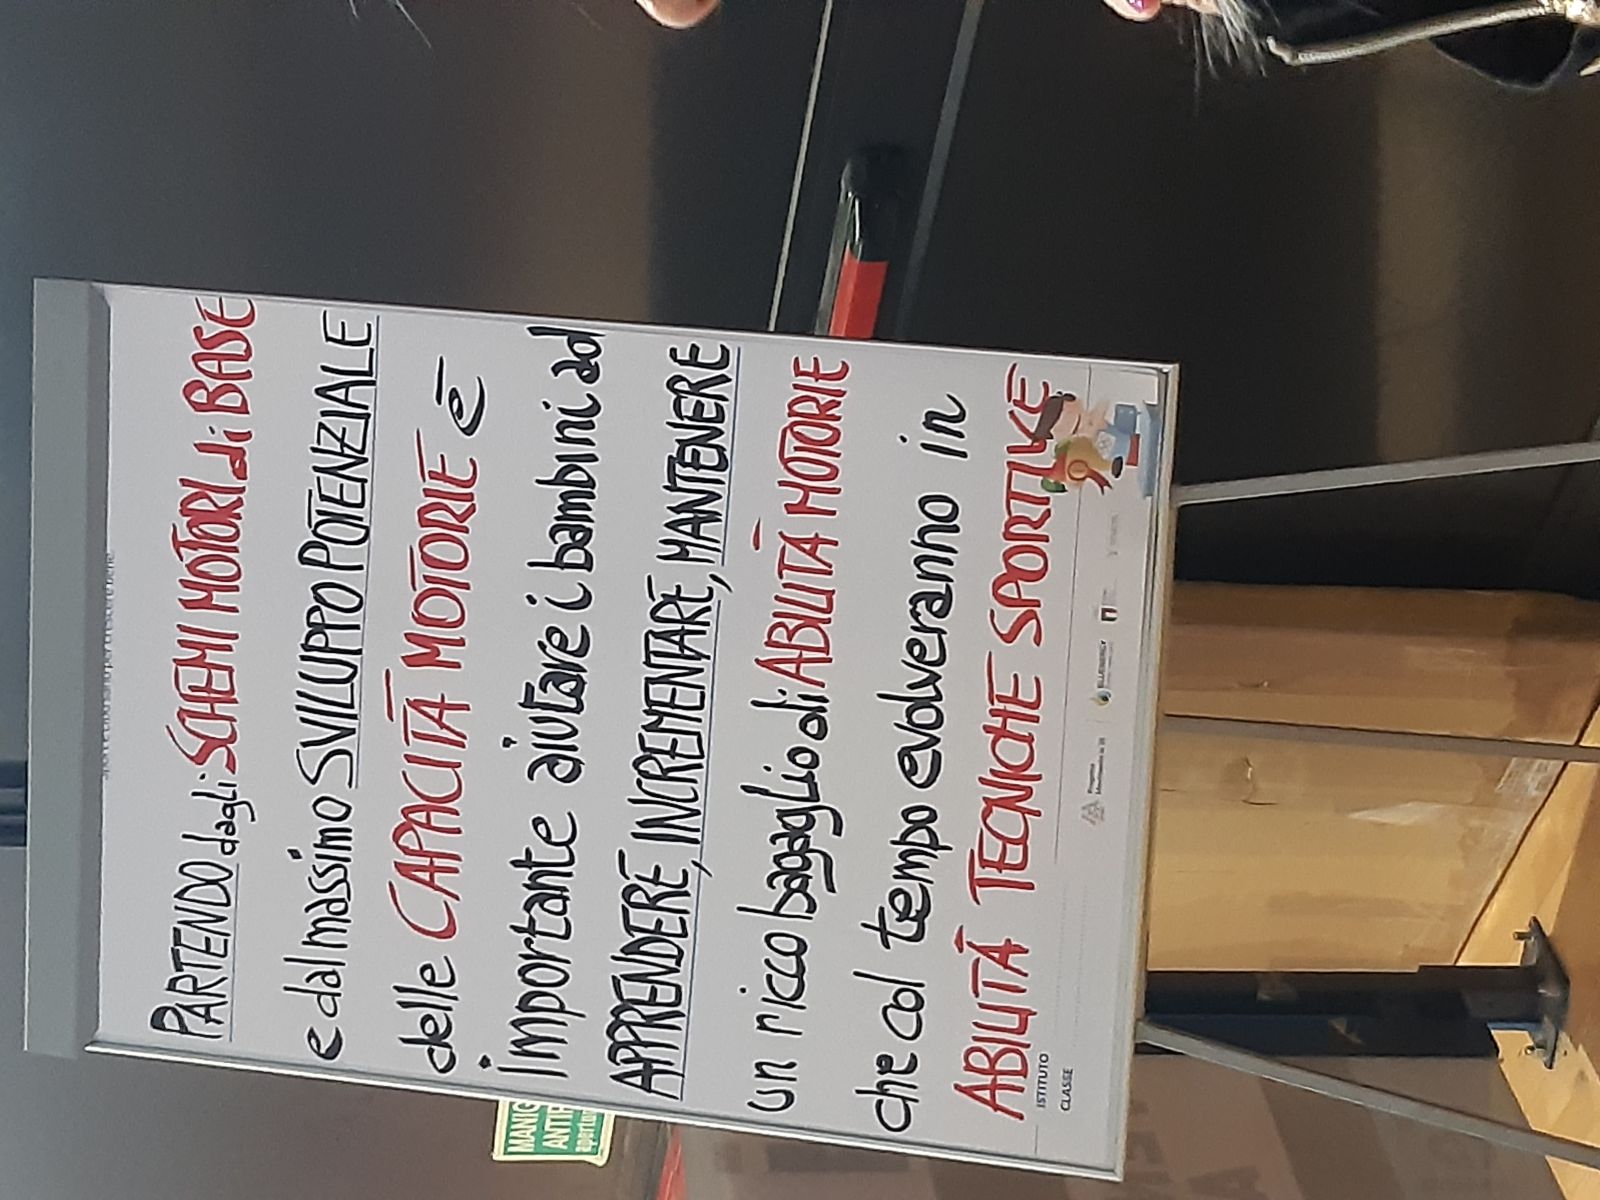 PARTENDO dagli SCHEMI MOTORI di BASE
e dal massimo SVILUPPO POTENZIALE
delle CAPACITÀ MOTORIE è
importante aiutare i bambini ad
APPRENDERE, INCREMENTARE, MANTENERE
un ricco bagaglio di ABILITÀ MOTORIE
che col tempo evolveranno in
ABILITÀ TECNICHE SPORTIVE
ISTITUTO
CLASSE
MANIG
ANTIP
apertur